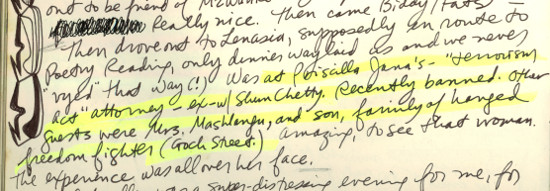 out to be friend of
Really nice. Then came Biday/Fats
Then drove out to Lenasia, supposedly en route to
Poetry Reading, only dinner waylaid us and we never
"vaged" that way (!) Was at Priscilla Jana's - "terrorism
act" attorney - ex-w/ Shun Chetty. Recently banned. Other
guests were Mrs. Mashlengu, and son, family of hanged
freedom fighter (Goch Street.) amazing, to see that woman.
The experience was all over her face.
distressing evening for me, for